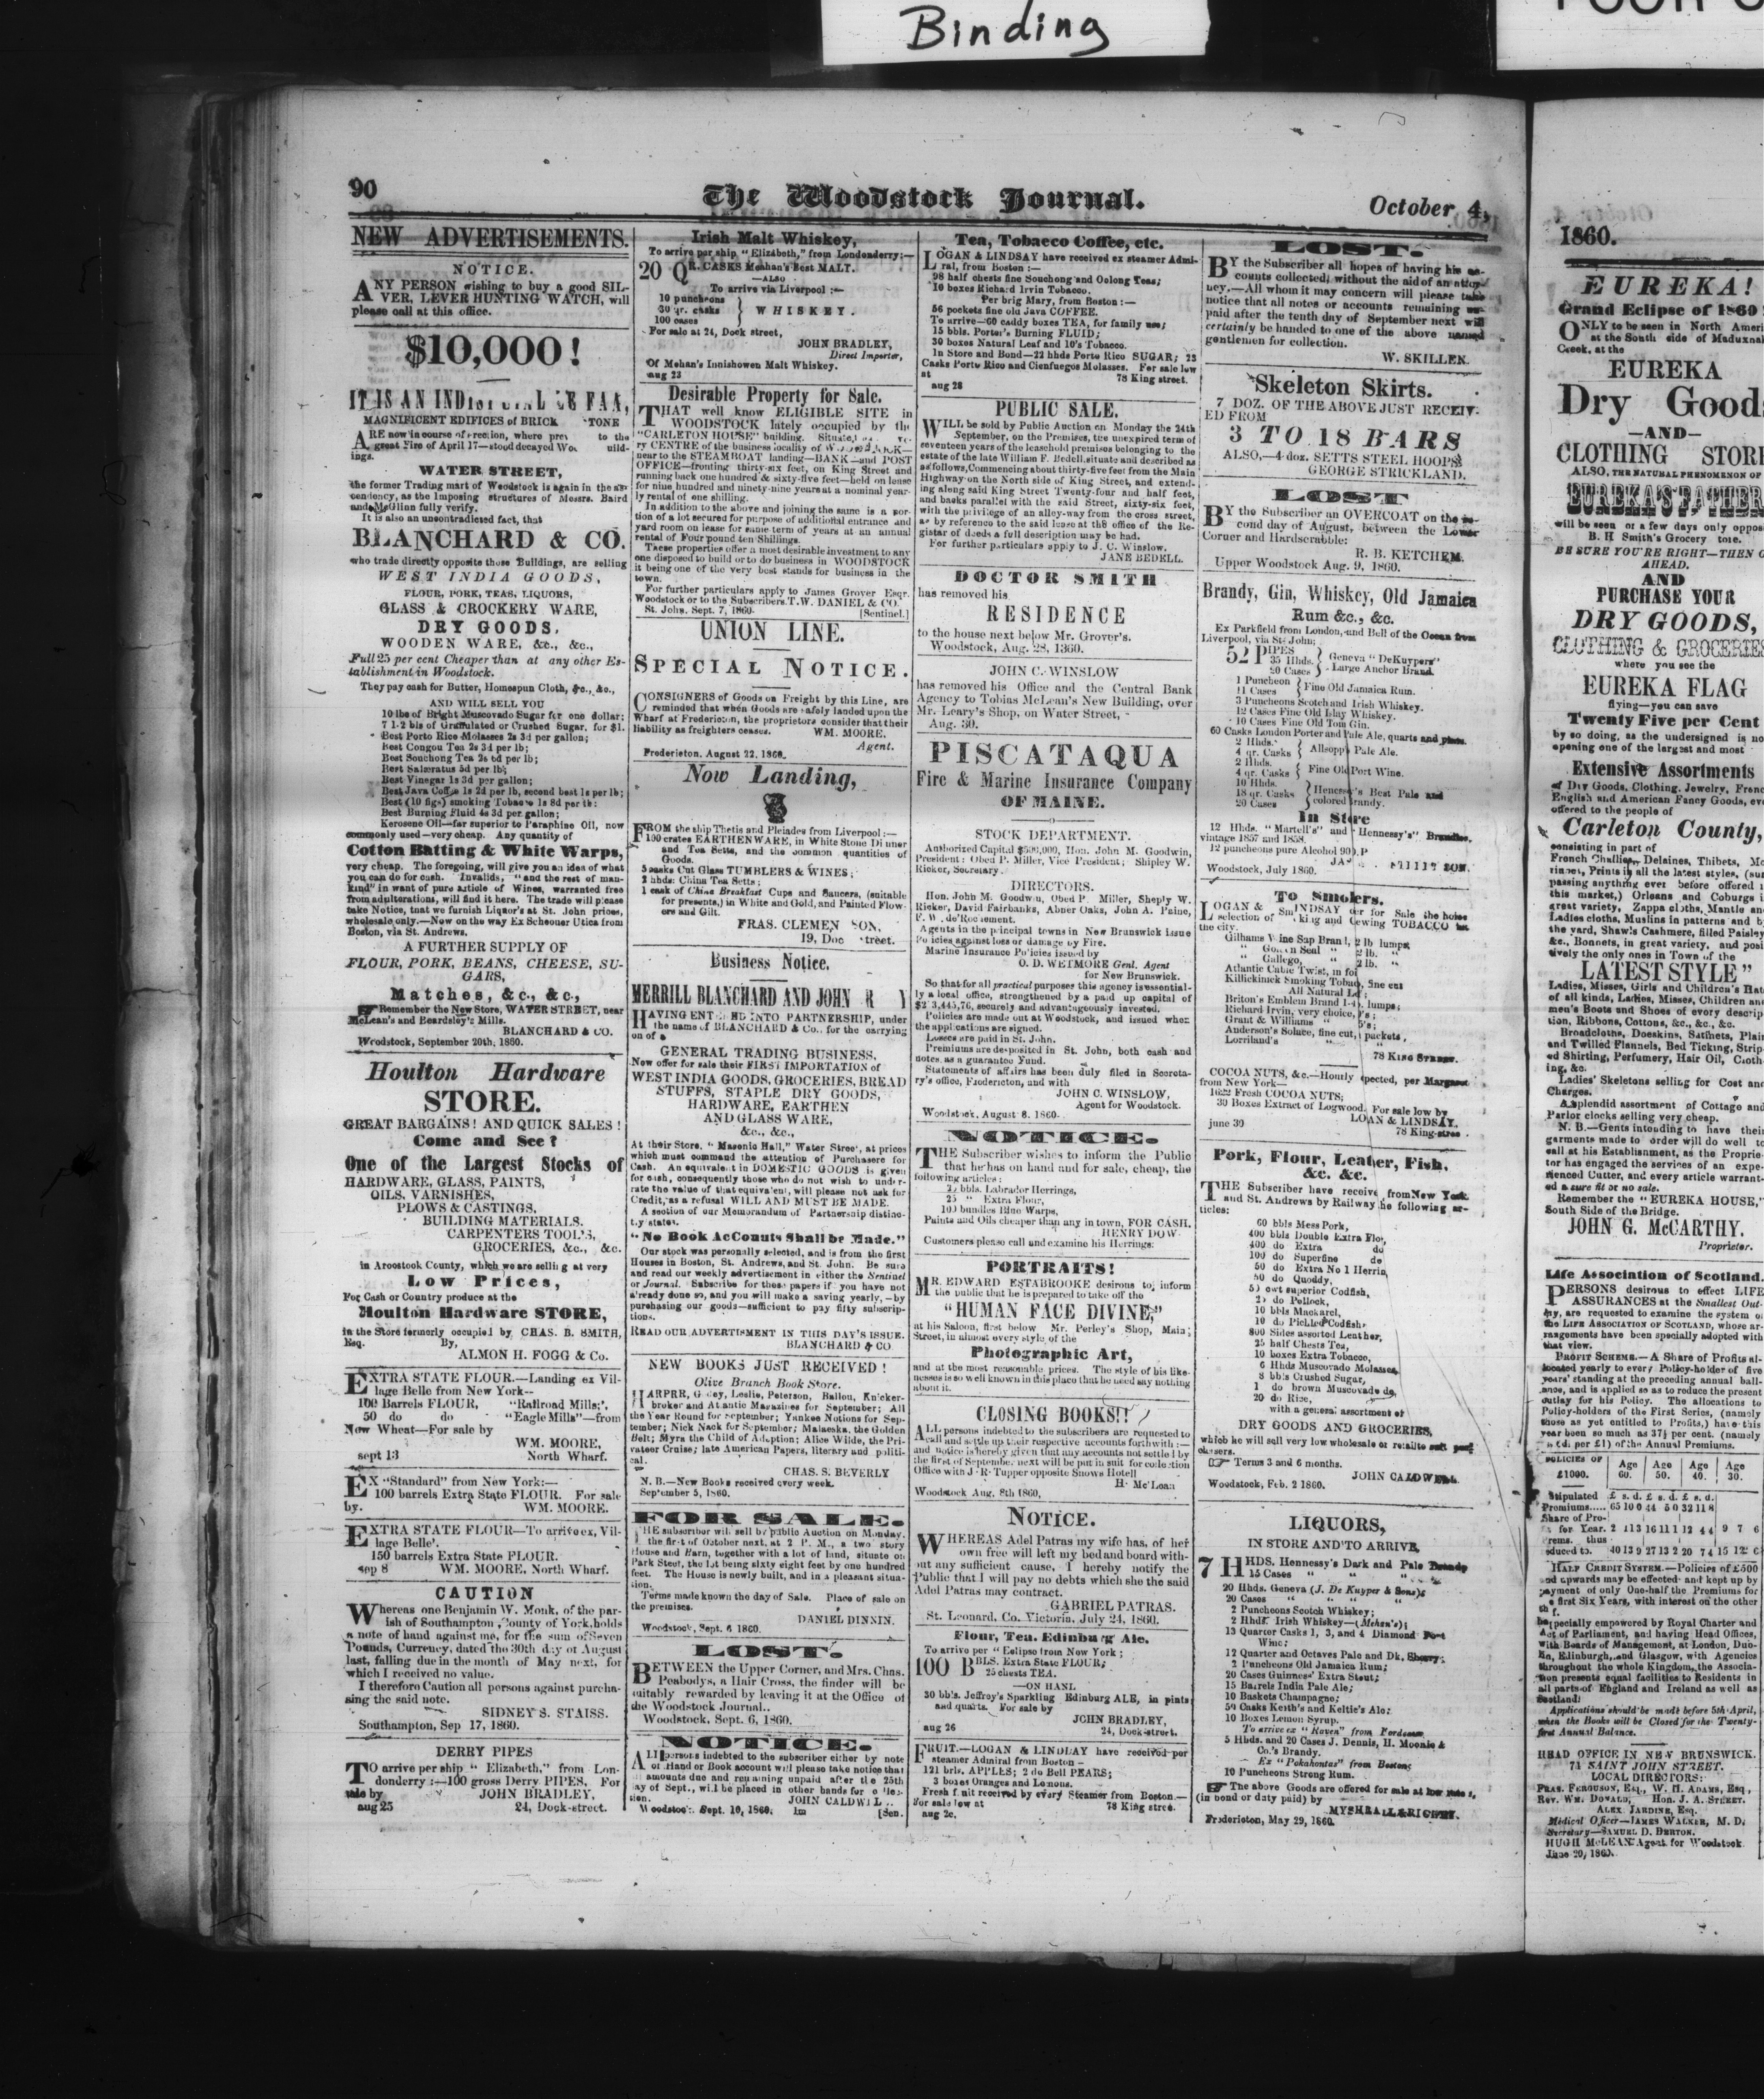 Binding
90
The Woodstock Journal.
October 4,
NEW ADVERTISEMENTS.
NOTICE.
ANY PERSON wishing to buy a good SIL-
VER, LEVER HUNTING WATCH, will
please call at this office.
$10,000!
IT IS AN
MAGNIFICENT EDIFICES of BRICK
ARE now in course of erection, where to the
great Fire of April 17—stood decayed
ings.
WATER STREET,
the former Trading mart of Woodstock is again in the as-
cendency, as the Imposing structures of Messrs. Baird
and McGlinn fully verify.
It is also an uncontradicted fact, that
BLANCHARD & CO.
who trade directly opposite those Buildings, are selling
WEST INDIA GOODS,
FLOUR, PORK, TEAS, LIQUORS,
GLASS & CROCKERY WARE,
DRY GOODS,
WOODEN WARE, &c., &c.,
Full 25 per cent Cheaper than at any other Es-
tablishment in Woodstock.
They pay cash for Butter, Homespun Cloth, &c., &c.,
AND WILL SELL YOU
10 lbs of Bright Muscovado Sugar for one dollar;
7 1-2 bls of Granulated or Crushed Sugar, for $1.
Best Porto Rico Molasses 2s 3d per gallon;
Best Congou Tea 2s 3d per lb;
Best Souchong Tea 2s 6d per lb;
Best Salæratus 5d per lb;
Best Vinegar 1s 3d per gallon;
Best Java Coffee 1s 2d per lb, second best 1s per lb;
Best (10 figs) smoking Tobacco 1s 8d per lb:
Best Burning Fluid 4s 3d per gallon;
Kerosene Oil—far superior to Paraphine Oil, now
commonly used—very cheap. Any quantity of
Cotton Batting & White Warps,
very cheap. The foregoing, will give you an idea of what
you can do for cash. Invalids, "and the rest of man-
kind" in want of pure article of Wines, warranted free
from adulterations, will find it here. The trade will please
take Notice, that we furnish Liquor's at St. John prices,
wholesale only.—Now on the way Ex Schooner Utica from
Boston, via St. Andrews.
A FURTHER SUPPLY OF
FLOUR, PORK, BEANS, CHEESE, SU-
GARS,
Matches, &c., &c.,
Remember the New Store, WATER STREET, near
McLean's and Beardsley's Mills.
BLANCHARD & CO.
Woodstock, September 20th, 1860.
Houlton Hardware
STORE.
GREAT BARGAINS! AND QUICK SALES!
Come and See?
One of the Largest Stocks of
HARDWARE, GLASS, PAINTS,
OILS, VARNISHES,
PLOWS & CASTINGS,
BUILDING MATERIALS.
CARPENTERS TOOL'S,
GROCERIES, &c., &c.
in Aroostook County, which we are selling at very
Low Prices,
For Cash or Country produce at the
Houlton Hardware STORE,
in the Store formerly occupied by CHAS. B. SMITH,
Esq. By,
ALMON H. FOGG & Co.
EXTRA STATE FLOUR.—Landing ex Vil-
lage Belle from New York--
100 Barrels FLOUR, "Railroad Mills;',
50 do do "Eagle Mills"—from
Now Wheat—For sale by
WM. MOORE,
sept 13 North Wharf.
EX "Standard" from New York:—
100 barrels Extra State FLOUR. For sale
by. WM. MOORE.
EXTRA STATE FLOUR—To arrive ex, Vil-
lage Belle'.
150 barrels Extra State FLOUR.
sep 8 WM. MOORE. North Wharf.
CAUTION
Whereas one Benjamin W. Monk, of the par-
ish of Southampton, County of York, holds
a note of hand against me, for the sum of Seven
Pounds, Currency, dated the 30th day of August
last, falling due in the month of May next, for
which I received no value.
I therefore Caution all persons against purcha-
sing the said note.
SIDNEY S. STAISS.
Southampton, Sep 17, 1860.
DERRY PIPES
TO arrive per ship "Elizabeth," from Lon-
donderry :—100 gross Derry PIPES, For
sale by JOHN BRADLEY,
aug 25 24, Dock-street.
Irish Malt Whiskey,
To arrive par ship "Elizabeth," from Londonderry:—
20 QR. CASKS Meahan's Best MALT.
—ALSO—
To arrive via Liverpool :—
10 puncheons
30 qr. casks WHISKEY.
100 cases
For sale at 24, Dock street,
JOHN BRADLEY,
Direct Importer,
Of Mehan's Innishowen Malt Whiskey.
aug 23
Desirable Property for Sale.
THAT well know ELIGIBLE SITE in
WOODSTOCK lately occupied by the
"CARLETON HOUSE" building. Situated
ry CENTRE of the business locality of WOODSTOCK—
near to the STEAMBOAT landing—BANK—and POST
OFFICE—fronting thirty-six feet, on King Street and
running back one hundred & sixty-five feet—held on lease
for nine hundred and ninety-nine years at a nominal year-
ly rental of one shilling.
In addition to the above and joining the same is a por-
tion of a lot secured for purpose of additional entrance and
yard room on lease for same term of years at an annual
rental of Four pound ten Shillings.
These properties offer a most desirable investment to any
one disposed to build or to do business in WOODSTOCK
it being one of the very best stands for business in the
town.
For further particulars apply to James Grover Esqr.
Woodstock or to the Subscribers. T. W. DANIEL & CO.
St. John, Sept. 7, 1860. [Sentinel.]
UNION LINE.
SPECIAL NOTICE.
CONSIGNERS of Goods on Freight by this Line, are
reminded that when Goods are safely landed upon the
Wharf at Fredericton, the proprietors consider that their
liability as freighters ceases. WM. MOORE.
Agent.
Fredericton, August 22, 1860.
Now Landing,
FROM the ship Thetis and Pleiades from Liverpool :—
100 crates EARTHENWARE, in White Stone Dinner
and Tea Setts, and the common quantities of
Goods.
5 casks Cut Glass TUMBLERS & WINES;
2 hhds: China Tea Setts;
1 cask of China Breakfast Cups and Saucers, (suitable
for presents,) in White and Gold, and Painted Flow-
ers and Gilt.
FRAS. CLEMEN
19, Doc
Business Notice.
MERRILL BLANCHARD AND JOHN
HAVING ENTERED INTO PARTNERSHIP, under
the name of BLANCHARD & Co., for the carrying
on of a
GENERAL TRADING BUSINESS,
Now offer for sale their FIRST IMPORTATION of
WEST INDIA GOODS, GROCERIES, BREAD
STUFFS, STAPLE DRY GOODS,
HARDWARE, EARTHEN
AND GLASS WARE,
&c., &c.,
At their Store, "Masonic Hall," Water Street, at prices
which must command the attention of Purchasers for
Cash. An equivalent in DOMESTIC GOODS is given
for cash, consequently those who do not wish to under-
rate the value of that equivalent, will please not ask for
Credit, as a refusal WILL AND MUST BE MADE.
A section of our Memorandum of Partnership distinc-
tly states,
"No Book AcConuts Shall be Made."
Our stock was personally selected, and is from the first
Houses in Boston, St. Andrews, and St. John. Be sure
and read our weekly advertisement in either the Sentinel
or Journal. Subscribe for these papers if you have not
already done so, and you will make a saving yearly,—by
purchasing our goods—sufficient to pay fifty subscrip-
tions.
READ OUR ADVERTISMENT IN THIS DAY'S ISSUE.
BLANCHARD & CO
NEW BOOKS JUST RECEIVED!
Olive Branch Book Store.
HARPRR, Godey, Leslie, Peterson, Ballou, Knicker-
broker and Atlantic Magazines for September; All
the Year Round for September; Yankee Notions for Sep-
tember; Nick Nack for September; Malaeska, the Golden
Belt; Myra the Child of Adoption; Alice Wilde, the Pri-
vateer Cruise; late American Papers, literary and politi-
cal.
CHAS. S. BEVERLY
N. B.—New Books received every week.
September 5, 1860.
FOR SALE.
THE subscriber will sell by public Auction on Monday,
the first of October next, at 2 P. M., a two story
House and Barn, together with a lot of land, situate on
Park Steet, the lot being sixty eight feet by one hundred
feet. The House is newly built, and in a pleasant situa-
sion.
Terms made known the day of Sale. Place of sale on
the premises.
DANIEL DINNIN.
Woodstock, Sept. 6 1860.
LOST.
BETWEEN the Upper Corner, and Mrs. Chas.
Peabodys, a Hair Cross, the finder will be
suitably rewarded by leaving it at the Office of
the Woodstock Journal..
Woodstock, Sept. 6, 1860.
NOTICE.
ALL persons indebted to the subscriber either by note
of Hand or Book account will please take notice that
amounts due and remaining unpaid after the 25th
day of Sept., will be placed in other hands for collec-
tion. JOHN CALDW
Woodstock, Sept. 10, 1860. 1m [Sen.
Tea, Tobacco Coffee, etc.
LOGAN & LINDSAY have received ex steamer Admi-
ral, from Boston :—
98 half chests fine Souchong and Oolong Teas;
10 boxes Richard Irvin Tobacco.
Per brig Mary, from Boston :—
56 pockets fine old Java COFFEE.
To arrive—60 caddy boxes TEA, for family use;
15 bbls. Porter's Burning FLUID;
30 boxes Natural Leaf and 10's Tobacco.
In Store and Bond—22 hhds Porto Rico SUGAR; 23
Casks Porto Rico and Cienfuegos Molasses. For sale low
at 78 King street.
aug 28
PUBLIC SALE.
WILL be sold by Public Auction on Monday the 24th
September, on the Premises, the unexpired term of
seventeen years of the leasehold premises belonging to the
estate of the late William F. Bedell, situate and described as
as follows, Commencing about thirty-five feet from the Main
Highway on the North side of King Street, and extend-
ing along said King Street Twenty-four and half feet,
and backs parallel with the said Street, sixty-six feet,
with the privilege of an alley-way from the cross street,
as by reference to the said lease at the office of the Re-
gistar of deeds a full description may be had.
For further particulars apply to J. C. Winslow.
JANE BEDELL.
DOCTOR SMITH
has removed his
RESIDENCE
to the house next below Mr. Grover's.
Woodstock, Aug. 28, 1860.
JOHN C. WINSLOW
has removed his Office and the Central Bank
Agency to Tobias McLean's New Building, over
Mr. Leary's Shop, on Water Street,
Aug. 30.
PISCATAQUA
Fire & Marine Insurance Company
OF MAINE.
STOCK DEPARTMENT.
Authorized Capital $500,000, Hon. John M. Goodwin,
President: Obed P. Miller, Vice President; Shipley W.
Ricker, Secretary.
DIRECTORS.
Hon. John M. Goodwin, Obed P. Miller, Sheply W.
Rieker, David Fairbanks, Abner Oaks, John A. Paine,
F. W. de Rocement.
Agents in the principal towns in New Brunswick issue
Policies against loss or damage by Fire.
Marine Insurance Policies issued by
O. D. WETMORE Genl. Agent
for New Brunswick.
So that for all practical purposes this agency is essential-
ly a local office, strengthened by a paid up capital of
securely and advantageously invested.
Policies are made out at Woodstock, and issued when
the applications are signed.
Losses are paid in St. John.
Premiums are desposited in St. John, both cash and
notes, as a guarantee Fund.
Statements of affairs has been duly filed in Secreta-
ry's office, Fredericton, and with
JOHN C. WINSLOW,
Agent for Woodstock.
Woodstock, August 8. 1860.
NOTICE.
THE Subscriber wishes to inform the Public
that he has on hand and for sale, cheap, the
following articles:
bbls. Labrador Herrings,
25 " Extra Flour,
100 bundles Blue Warps,
Paints and Oils cheaper than any in town, FOR CASH.
HENRY DOW.
Customers please call and examine his Herrings.
PORTRAITS!
MR. EDWARD ESTABROOKE desirous to inform
the public that he is prepared to take off the
"HUMAN FACE DIVINE,"
at his Saloon, first below Mr. Perley's Shop, Main;
Street, in almost every style of the
Photographic Art,
and at the most reasonable prices. The style of his like-
nesses is so well known in this place that he need say nothing
about it.
CLOSING BOOKS!!
ALL persons indebted to the subscribers are requested to
call and settle up their respective accounts forthwith:—
and notice is hereby given that any accounts not settled by
the first of September next will be put in suit for collection
Office with J. R. Tupper opposite Snows Hotell
H. McLean
Woodstock Aug. 8th 1860,
NOTICE.
WHEREAS Adel Patras my wife has, of her
own free will left my bed and board with-
out any sufficient cause, I hereby notify the
Public that I will pay no debts which she the said
Adel Patras may contract.
GABRIEL PATRAS.
St. Leonard, Co. Victoria, July 24, 1860.
Flour, Tea. Edinburg Ale.
To arrive per "Eclipse from New York;
100 BBLS. Extra State FLOUR;
25 chests TEA.
—ON HAND
30 bbls. Jeffrey's Sparkling Edinburg ALE, in pints
and quarts. For sale by
JOHN BRADLEY,
aug 26 24, Dock-street.
FRUIT.—LOGAN & LINDSAY have received per
steamer Admiral from Boston—
121 brls. APPLES; 2 do Bell PEARS;
3 boxes Oranges and Lemons.
Fresh Fruit received by every Steamer from Boston.—
For sale low at 78 King stree.
LOST.
BY the Subscriber all hopes of having his ac-
counts collected, without the aid of an attor-
ney.—All whom it may concern will please take
notice that all notes or accounts remaining un-
paid after the tenth day of September next will
certainly be handed to one of the above named
gentlemen for collection.
W. SKILLEN.
Skeleton Skirts.
7 DOZ. OF THE ABOVE JUST RECEIV-
ED FROM
3 TO 18 BARS
ALSO,—4 doz. SETTS STEEL HOOPS
GEORGE STRICKLAND.
LOST
BY the Subscriber an OVERCOAT on the se-
cond day of August, between the Lower
Corner and Hardscrabble:
R. B. KETCHEM.
Upper Woodstock Aug. 9, 1860.
Brandy, Gin, Whiskey, Old Jamaica
Rum &c., &c.
Ex Parkfield from London, and Bell of the Ocean from
Liverpool, via St. John;
52 PIPES
35 Hhds. Geneva "DeKuypers"
20 Cases Large Anchor Brand.
1 Puncheon
11 Cases Fine Old Jamaica Rum.
3 Puncheons Scotch and Irish Whiskey.
12 Cases Fine Old Islay Whiskey.
10 Cases Fine Old Tom Gin.
60 Casks London Porter and Pale Ale, quarts and pints.
2 Hhds.
4 qr. Casks Allsopp's Pale Ale.
2 Hhds.
4 qr. Casks Fine Old Port Wine.
10 Hhds.
18 qr. Casks Henessy's Best Pale and
20 Cases colored Brandy.
In Store
12 Hhds. "Martell's" and "Hennessy's" Brandies,
vintage 1857 and 1858.
12 puncheons pure Alcohol
Woodstock, July 1860.
To Smokers,
LOGAN & LINDSAY offer for Sale the
selection of Smoking and Cewing TOBACCO in
the city.
Gilhams Vine Sap Brand, 2 lb lumps
" Golden Seal " 2 lb. "
" Gallego, " 2 lb. "
Atlantic Cable Twist, in foi
Killickinck Smoking Tobac, fine cut
All Natural Le
Briton's Emblem Brand lumps;
Richard Irvin, very choice,
Grant & Williams " 5's;
Anderson's Solace, fine cut, packets,
Lorriland's "
78 KING STREET.
COCOA NUTS, &c.—Hourly pected, per Margaret
from New York—
1622 Fresh COCOA NUTS;
30 Boxes Extract of Logwood. For sale low by
LOAN & LINDSAY.
june 30 78 King-stree
Pork, Flour, Leather, Fish.
&c. &c.
THE Subscriber have receive from New York
and St. Andrews by Railway he following ar-
ticles;
60 bbls Mess Pork,
400 bbls Double Extra Flo
400 do Extra do
100 do Superfine do
50 do Extra No 1 Herrin
50 do Quoddy,
cwt superior Codfish,
do Pollock,
10 bbls Mackarel,
10 do Pickled Codfish,
800 Sides assorted Leather,
25 half Chests Tea,
10 boxes Extra Tobacco,
6 Hhds Muscovado Molasses,
8 bbls Crushed Sugar,
1 do brown Muscovado do,
20 do Rice,
with a general assortment of
DRY GOODS AND GROCERIES,
which he will sell very low wholesale or retail to
chasers.
Terms 3 and 6 months.
JOHN CALDWELL.
Woodstock, Feb. 2 1860.
LIQUORS,
IN STORE AND TO ARRIVE,
7 HHDS. Hennessy's Dark and Pale Brandy
15 Cases " " "
20 Hhds. Geneva (J. De Kuyper & Sons);
20 Cases " " "
2 Puncheons Scotch Whiskey;
2 Hhds Irish Whiskey—(Mehan's);
13 Quarter Casks 1, 3, and 4 Diamond Port
Wine;
12 Quarter and Octaves Pale and Dk, Sherry;
2 Puncheons Old Jamaica Rum;
20 Cases Guinness' Extra Stout;
15 Barrels India Pale Ale;
10 Baskets Champagne;
50 Casks Keith's and Keltie's Ale;
10 Boxes Lemon Syrup.
To arrive ex "Raven" from Bordeaux
5 Hhds. and 20 Cases J. Dennis, H. Mounie &
Co.'s Brandy.
Ex "Pokahontas" from Boston;
10 Puncheons Strong Rum.
The above Goods are offered for sale at low rates,
(in bond or duty paid) by
MYSHRALL & RICHEY.
Fredericton, May 29, 1860.
1860.
EUREKA!
Grand Eclipse of 1860
ONLY to be seen in North Ameri
at the South side of Maduxnal
Creek, at the
EUREKA
Dry Goods
—AND—
CLOTHING STORE
ALSO, THE NATURAL PHENOMENON OF
EUREKA'S FATHER
will be seen or a few days only oppos
B. H Smith's Grocery tore.
BE SURE YOU'RE RIGHT—THEN G
AHEAD.
AND
PURCHASE YOUR
DRY GOODS,
CLOTHING & GROCERIES
where you see the
EUREKA FLAG
flying—you can save
Twenty Five per Cent
by so doing, as the undersigned is no
opening one of the largest and most
Extensive Assortments
of Dry Goods, Clothing, Jewelry, Frenc
English and American Fancy Goods, eve
offered to the people of
Carleton County,
consisting in part of
French Challies, Delaines, Thibets, Me
rinoes, Prints in all the latest styles, (sur
passing anything ever before offered i
this market,) Orleans and Coburgs i
great variety, Zappa cloths, Mantle an
Ladies cloths, Muslins in patterns and b
the yard, Shawls Cashmere, filled Paisley
&c., Bonnets, in great variety, and posi
tively the only ones in Town of the
LATEST STYLE"
Ladies, Misses, Girls and Children's Hat
of all kinds, Ladies, Misses, Children an
men's Boots and Shoes of every descrip
tion, Ribbons, Cottons, &c., &c., &c.
Broadcloths, Doeskins, Satinets, Plain
and Twilled Flannels, Bed Ticking, Strip
ed Shirting, Perfumery, Hair Oil, Cloth
ing, &c.
Ladies' Skeletons selling for Cost and
Charges.
A splendid assortment of Cottage and
Parlor clocks selling very cheap.
N. B.—Gents intending to have thei
garments made to order will do well to
call at his Establishment, as the Proprie
tor has engaged the services of an expe
rienced Cutter, and every article warrant-
ed a sure fit or no sale.
Remember the "EUREKA HOUSE,"
South Side of the Bridge.
JOHN G. McCARTHY.
Proprietor.
Life Association of Scotland.
PERSONS desirous to effect LIFE
ASSURANCES at the Smallest Out-
lay, are requested to examine the system of
the LIFE ASSOCIATION OF SCOTLAND, whose ar-
rangements have been specially adopted with
that view.
PROFIT SCHEME.—A Share of Profits al-
located yearly to every Policy-holder of five
years' standing at the preceding annual ball-
ance, and is applied so as to reduce the present
outlay for his Policy. The allocations to
Policy-holders of the First Series, (namely
those as yet entitled to Profits,) have this
year been so much as 37½ per cent. (namely
per £1) of the Annual Premiums.
POLICIES OF £1000. Age 60. Age 50. Age 40. Age 30.
Stipulated £ s. d. £ s. d. £ s. d.
Premiums..... 65 10 0 44 5 0 32 11 8
Share of Pro-
for Year.
thus
HALF CREDIT SYSTEM.—Policies of £500
and upwards may be effected and kept up by
payment of only One-half the Premiums for
first Six Years, with interest on the other
specially empowered by Royal Charter and
Act of Parliament, and having Head Offices,
with Boards of Management, at London, Dub-
lin, Edinburgh, and Glasgow, with Agencies
throughout the whole Kingdom, the Associa-
tion presents equal facilities to Residents in
all parts of England and Ireland as well as
Scotland!
Applications should be made before 5th April,
when the Books will be Closed for the Twenty-
first Annual Balance.
HEAD OFFICE IN NEW BRUNSWICK.
71 SAINT JOHN STREET.
LOCAL DIRECTORS:
FRAS. FERGUSON, Esq., W. H. ADAMS, Esq,
REV. WM. DONALD, Hon. J. A. STREET.
ALEX. JARDINE, Esq.
Medical Officer—JAMES WALKER, M. D.
Secretary—SAMUEL D. BERTON.
HUGH McLEAN Agent for Woodstock
June 20, 1860.